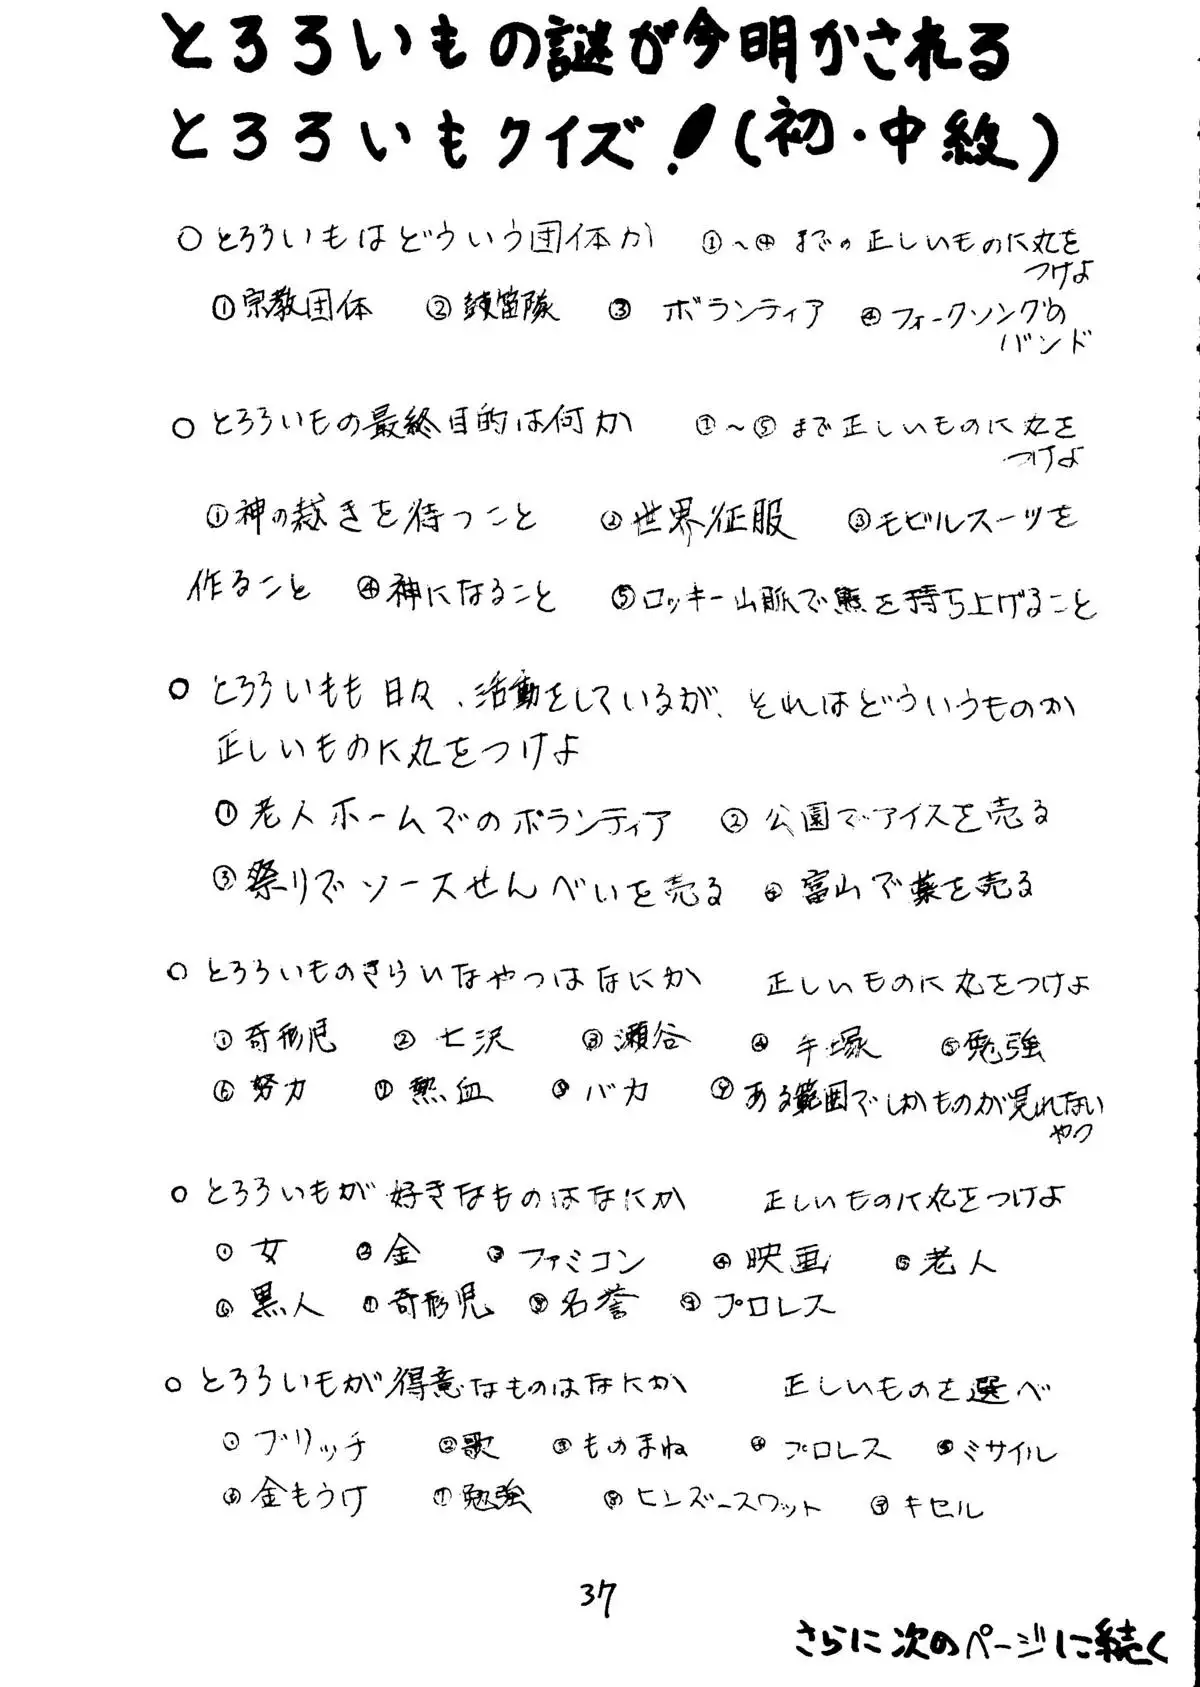 とろろいもの謎が今明かされる
とろろいもクイズ!(初・中級)
○とろろいもはどういう団体か ①~④までの正しいものに丸を
つけよ
①宗教団体 ②鼓笛隊 ③ボランティア ④フォークソングの
バンド
○とろろいもの最終目的は何か ①~⑤まで正しいものに丸を
つけよ
①神の裁きを待つこと ②世界征服 ③モビルスーツを
作ること ④神になること ⑤ロッキー山脈で熊を持ち上げること
○とろろいもも日々、活動をしているが、それはどういうものか
正しいものに丸をつけよ
①老人ホームでのボランティア ②公園でアイスを売る
③祭りでソースせんべいを売る ④富山で薬を売る
○とろろいものきらいなやつはなにか 正しいものに丸をつけよ
①奇形児 ②七沢 ③瀬谷 ④手塚 ⑤勉強
⑥努力 ⑦熱血 ⑧バカ ⑨ある範囲でしかものが見れない
やつ
○とろろいもが好きなものはなにか 正しいものに丸をつけよ
①女 ②金 ③ファミコン ④映画 ⑤老人
⑥黒人 ⑦奇形児 ⑧名誉 ⑨プロレス
○とろろいもが得意なものはなにか 正しいものを選べ
①ブリッヂ ②歌 ③ものまね ④プロレス ⑤ミサイル
⑥金もうけ ⑦勉強 ⑧ヒンズースワット ⑨キセル
37
さらに次のページに続く